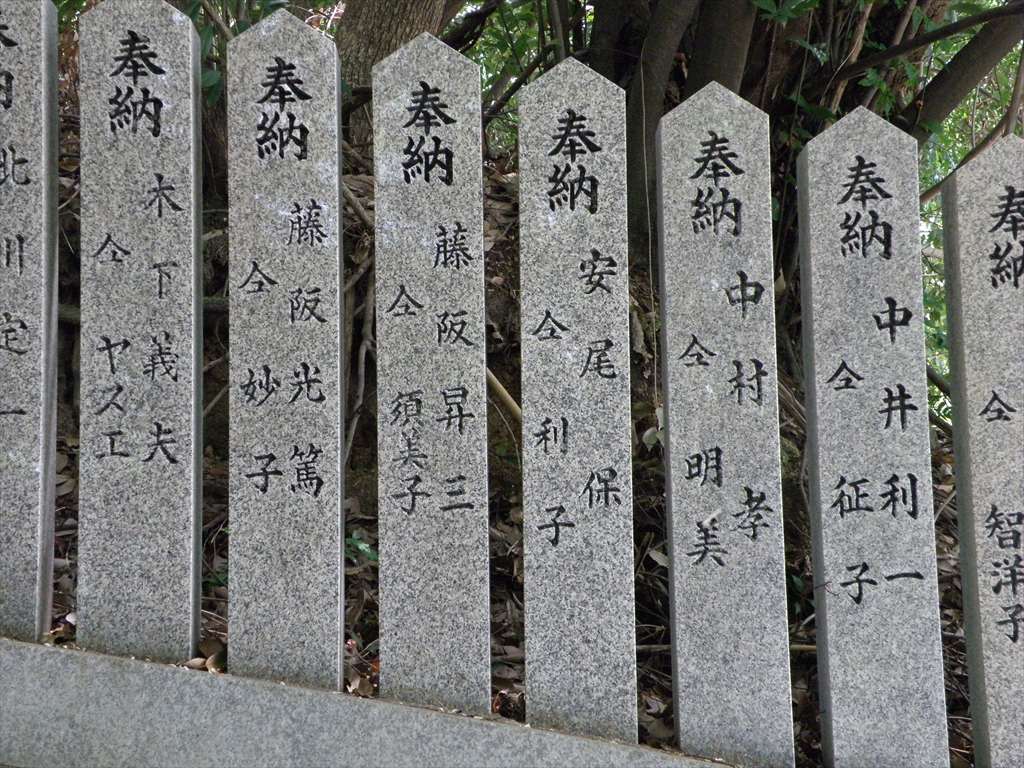 奉納
仝 智洋子
奉納
中井利一
仝 征子
奉納
中村孝
仝 明美
奉納
安尾保
仝 利子
奉納
藤阪昇三
仝 須美子
奉納
藤阪光篤
仝 妙子
奉納
木下義夫
仝 ヤスエ
北川定一